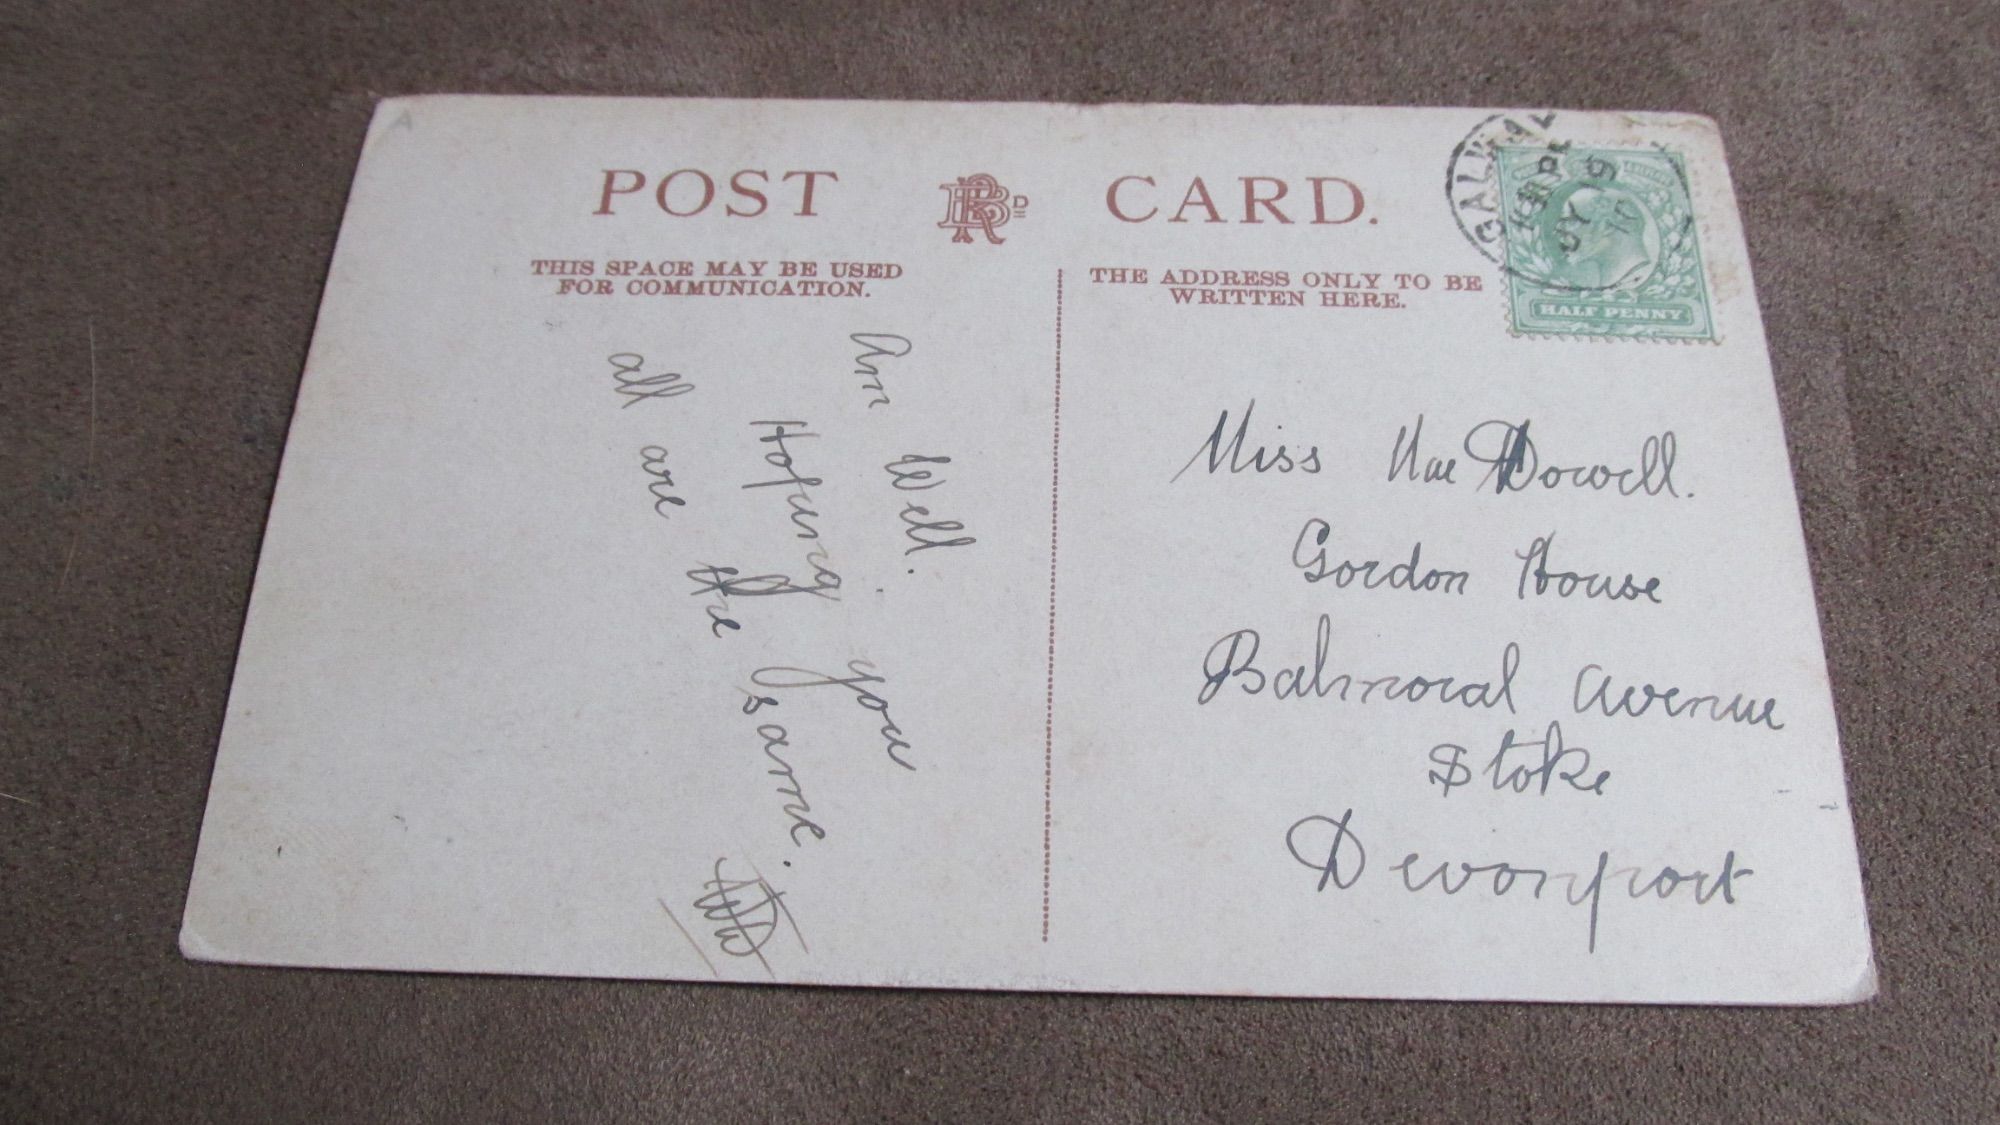 POST CARD.
THIS SPACE MAY BE USED
FOR COMMUNICATION.
Am Well.
Hoping you
all are the same.
THE ADDRESS ONLY TO BE
WRITTEN HERE.
GALWAY
JY 19
10
HALF PENNY
Miss Mac Dowell.
Gordon House
Balmoral Avenue
Stoke
Devonport